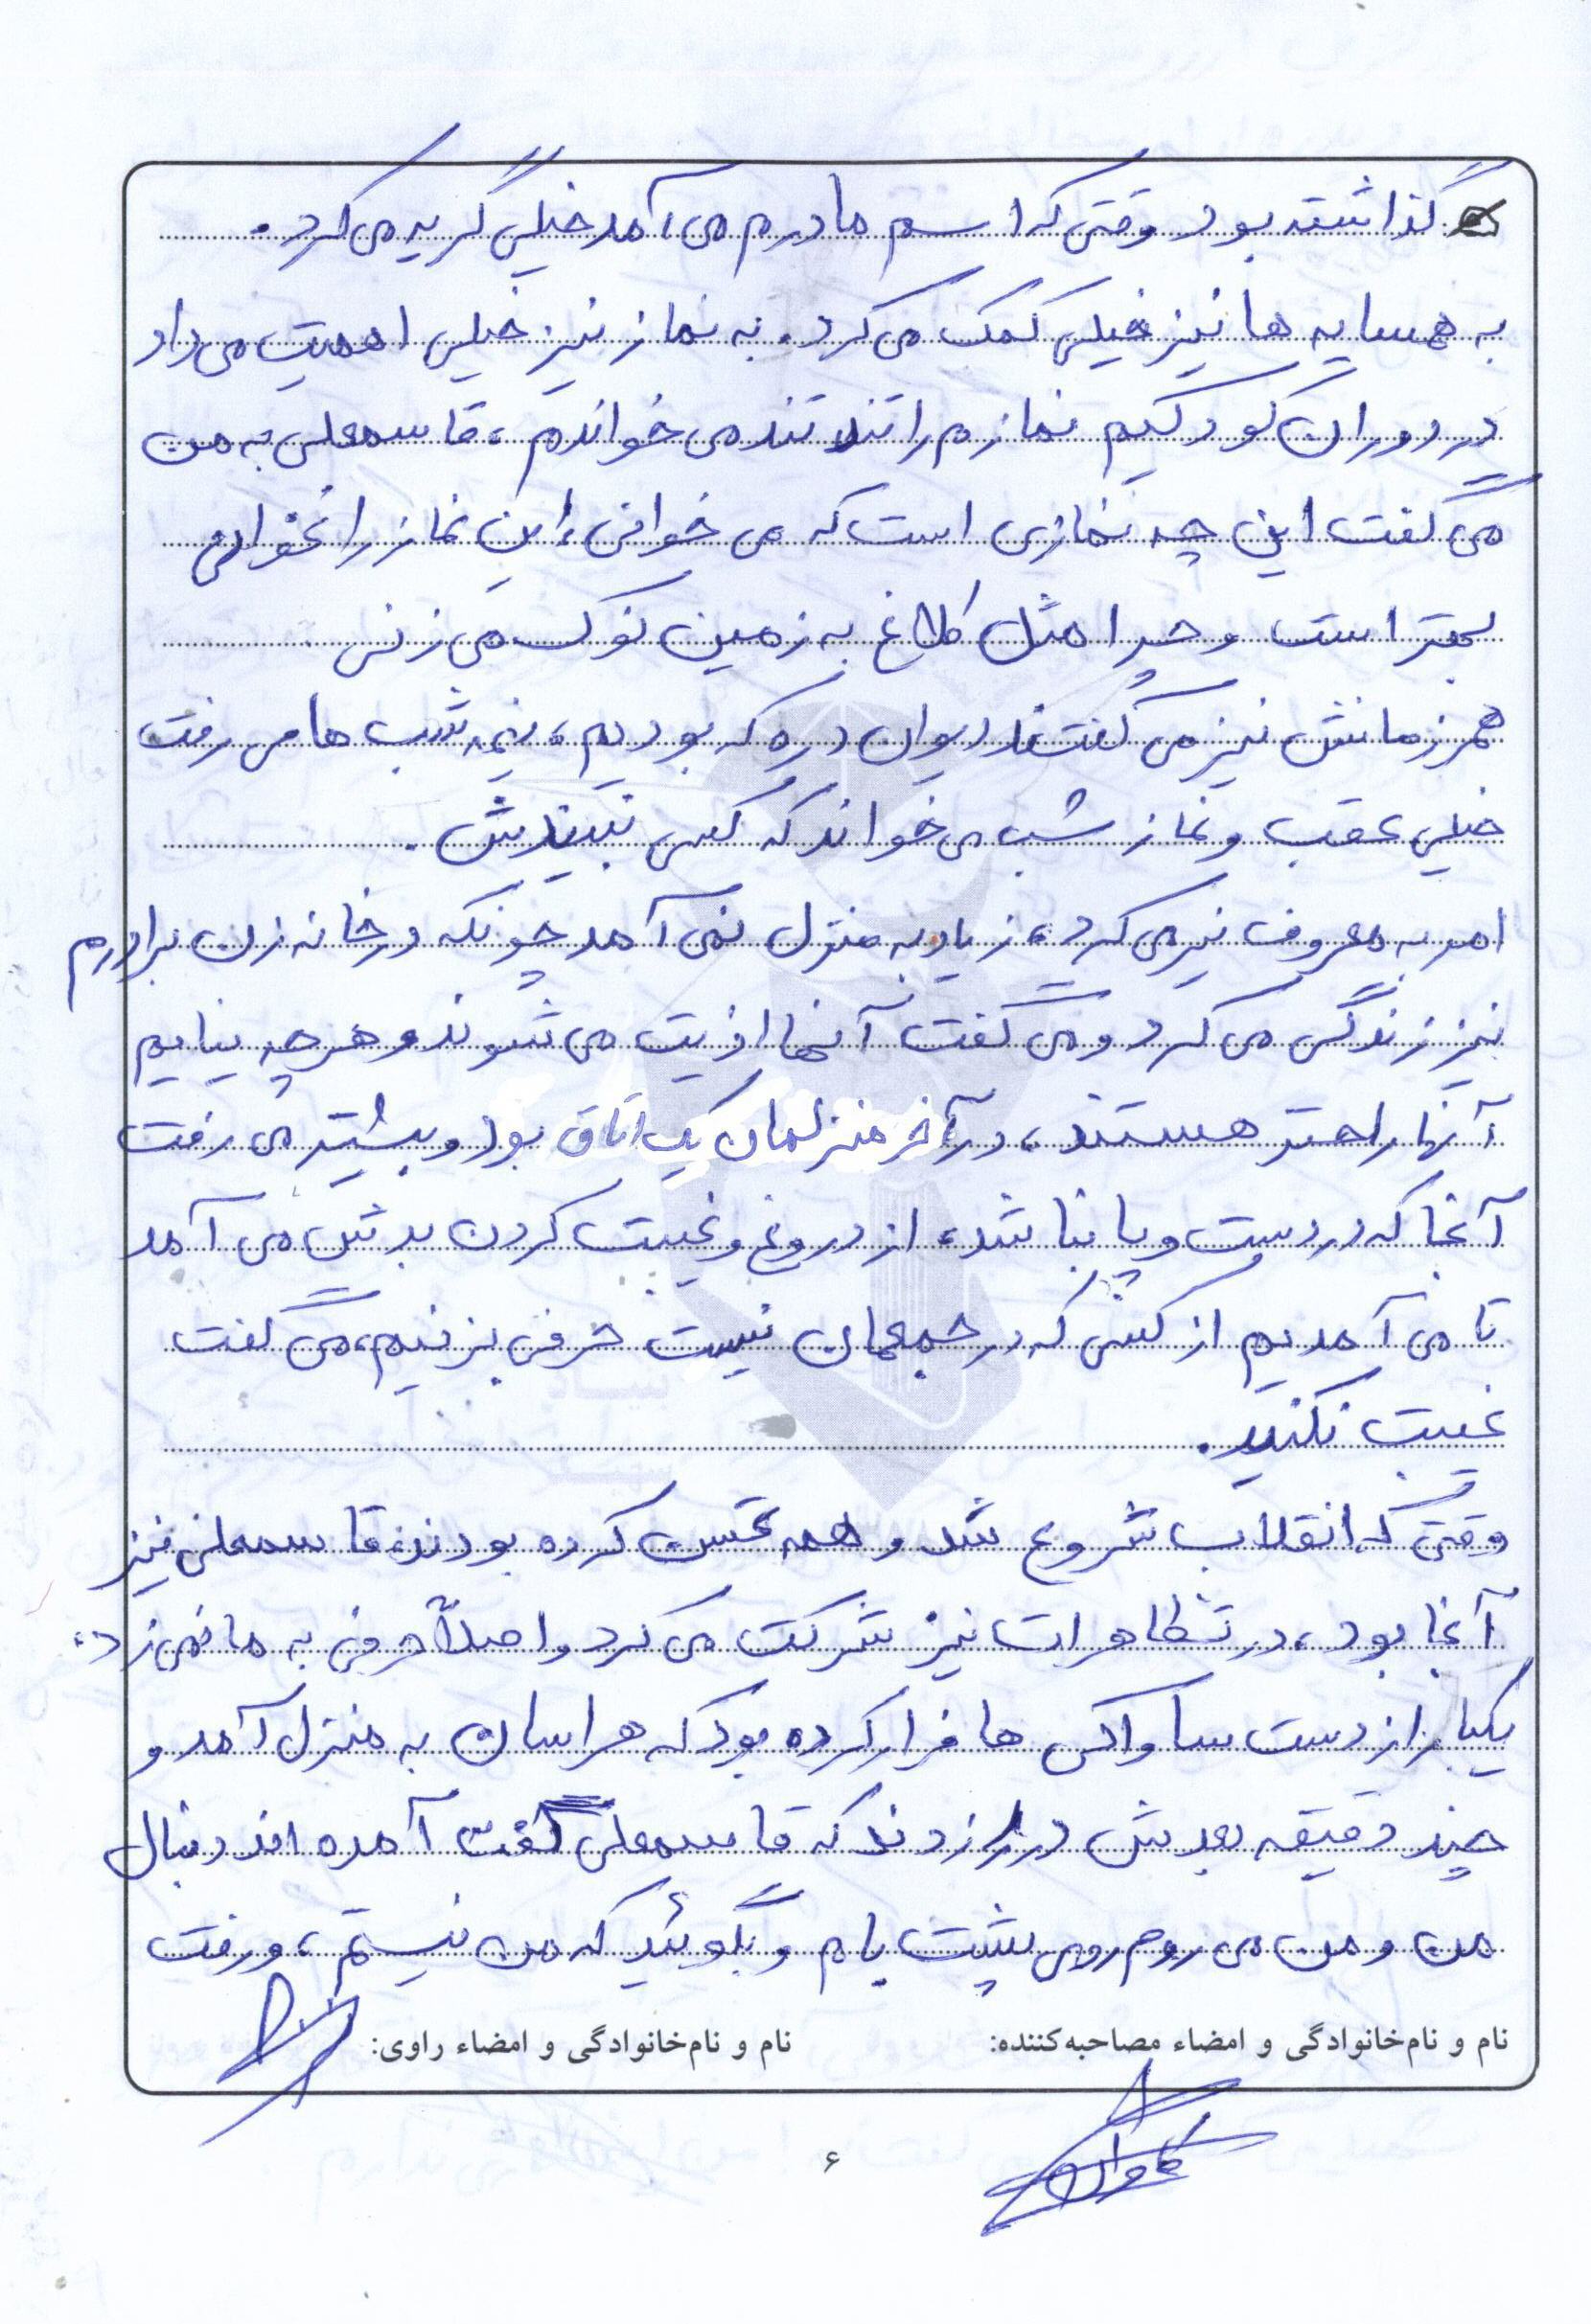 گذاشته بود وقتی که اسم مادرم می آمد خیلی گریه می کرد.
به همسایه ها نیز خیلی کمک می کرد. به نماز نیز خیلی اهمیت می داد
در دوران کودکیم نمازم را تند تند می خواندم، قاسمعلی به من
می گفت این چه نمازی است که می خوانی، این نماز را نخوانی
بهتر است و چرا مثل کلاغ به زمین نوک می زنی
همرزمانش نیز می گفتند دیوان دره که بودیم، نیمه شب ها می رفت
خیلی عقب و نماز شب می خواند که کسی نبیندش.
امر به معروف نیز می کرد، زیاد به منزل نمی آمد چونکه در خانه زن برادرم
نیز زندگی می کرد و می گفت آنها اذیت می شوند و هر چه نیایم
آنها راحتر هستند، در آخر منزلمان یک اتاق بود و بیشتر می رفت
آنجا که در دست و پا نباشد، از دروغ و غیبت کردن بدش می آمد
تا می آمدیم از کسی که در جمعمان نیست حرفی بزنیم، می گفت
غیبت نکنید.
وقتی که انقلاب شروع شد و همه تحسن کرده بودند، قاسمعلی نیز
آنجا بود، در تظاهرات نیز شرکت می کرد و اصلاً حرفی به ما نمی زد،
یکبار از دست ساواکی ها فرار کرده بود که هراسان به منزل آمد و
چند دقیقه بعدش در زدند که قاسمعلی گفت آمده اند دنبال
من و من می روم روی پشت بام و بگوئید که من نیستم، و رفت
نام و نام‌خانوادگی و امضاء مصاحبه‌کننده: نام و نام‌خانوادگی و امضاء راوی:
۶